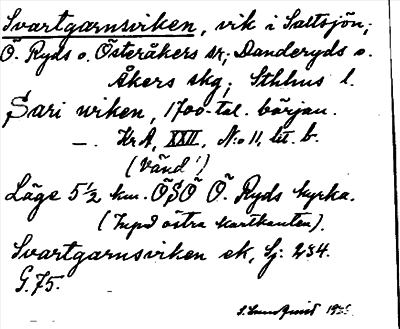 Svartgarnsviken, vik i Saltsjön;
Ö. Ryds o. Österåkers sr; Danderyds o.
Åkers skg; Sthlms l.
Sari wiken, 1700-tal. början.
—. KrA, XXII, N:o 11, lit. b.
(Vänd!)
Läge 5 ½ km. ÖSÖ Ö. Ryds kyrka.
(Invid östra kartkanten).
Svartgarnsviken ek, Sj. 234.
G. 75.